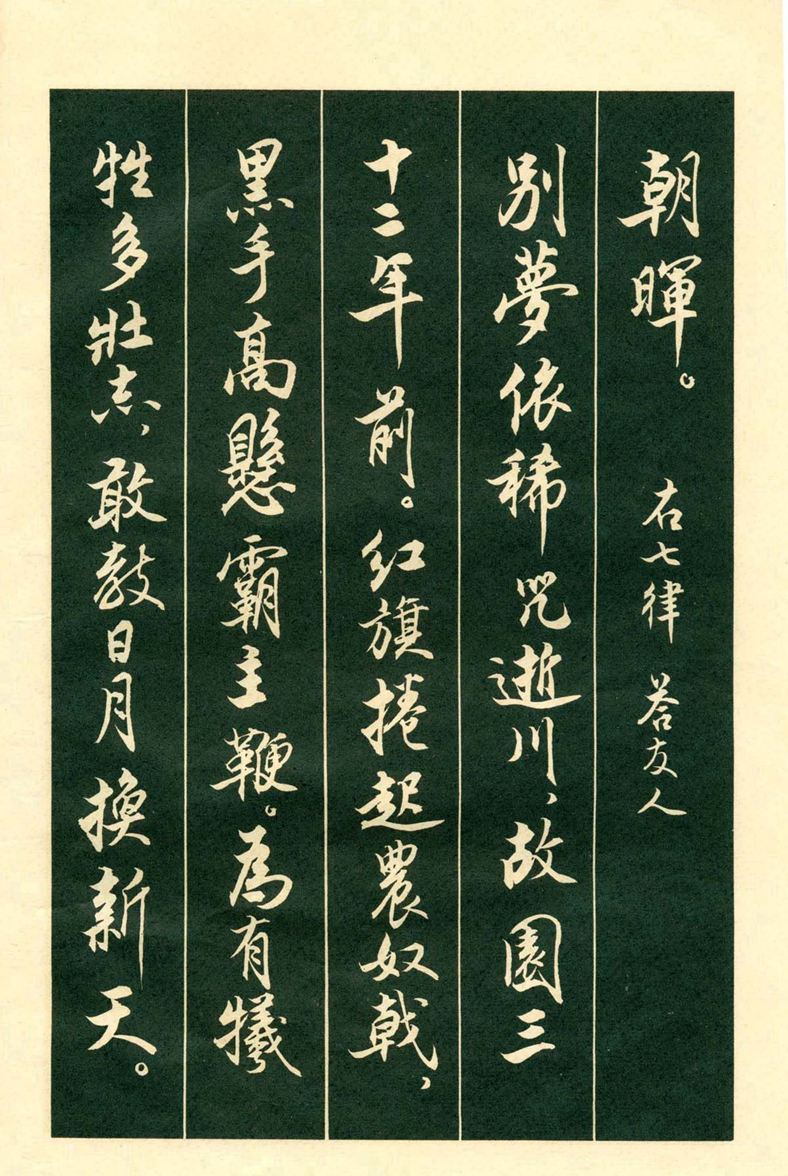 朝暉。 右七律 荅友人
別夢依稀咒逝川，故園三
十二年前。紅旗捲起農奴戟，
黑手高懸霸主鞭。為有犧
牲多壯志，敢敎日月換新天。